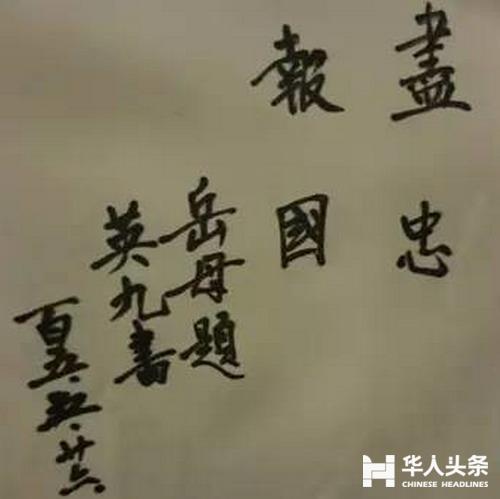 盡忠
報國
岳母題
英九書
百五.五.廿六
华人头条
CHINESE HEADLINES